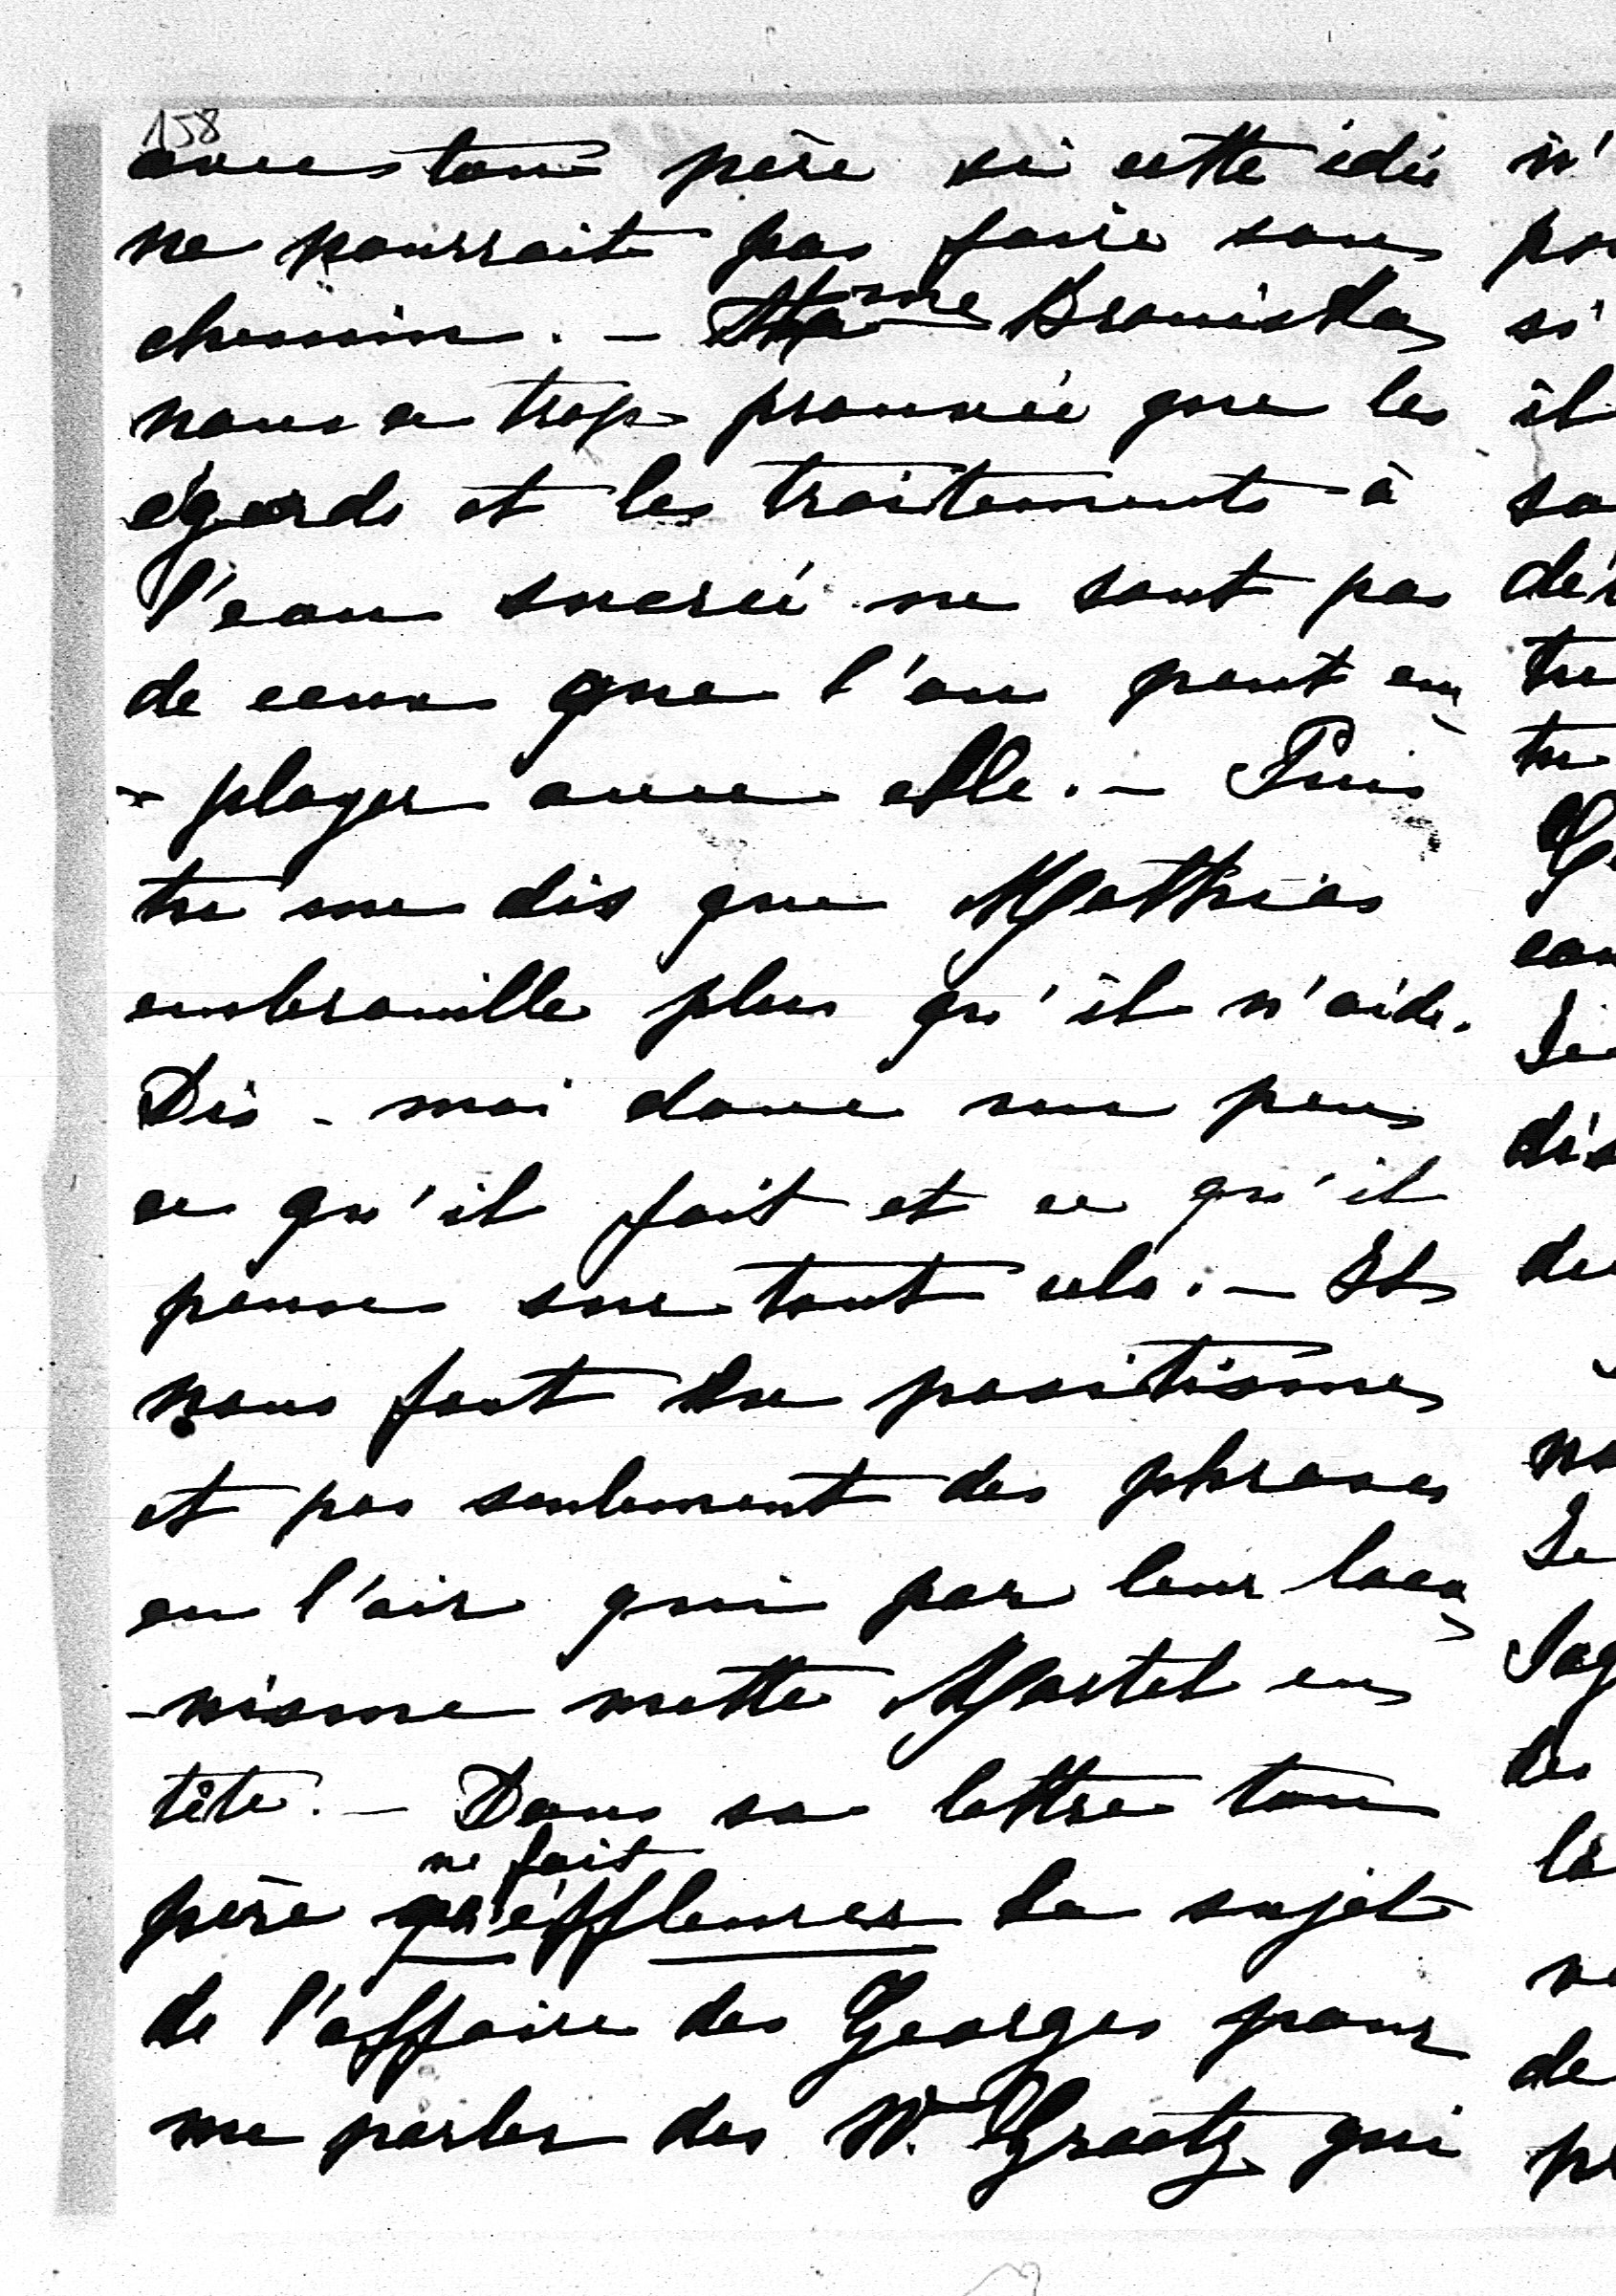 158
avec ton père si cette idée
ne pourrait pas faire son
chemin. – Bronislas
nous a trop prouvée que les
égards et les traitements à
l'eau sucrée ne sont pas
de ceux que l'on peut em
- ployer avec elle. – Puis
tu me dis que Mathias
embrouille plus qu'il n'aide.
Dis - moi donc un peu
ce qu'il fait et ce qu'il
pense sur tout cela. – Il
nous faut du positisme
et pas seulement des phrases
en l'air qui par leur laco
- nisme mette Martel en
tête. – Dans sa lettre ton
ne fait
père qu'éffleurer le sujet
de l'affaire des Georges pour
me parler des W. Graetz qui
n'
po
si
il
sa
dés
tu
tu
Ge
con
Je
dis
de
no
Je
Jag
des
la
ne
de
pe